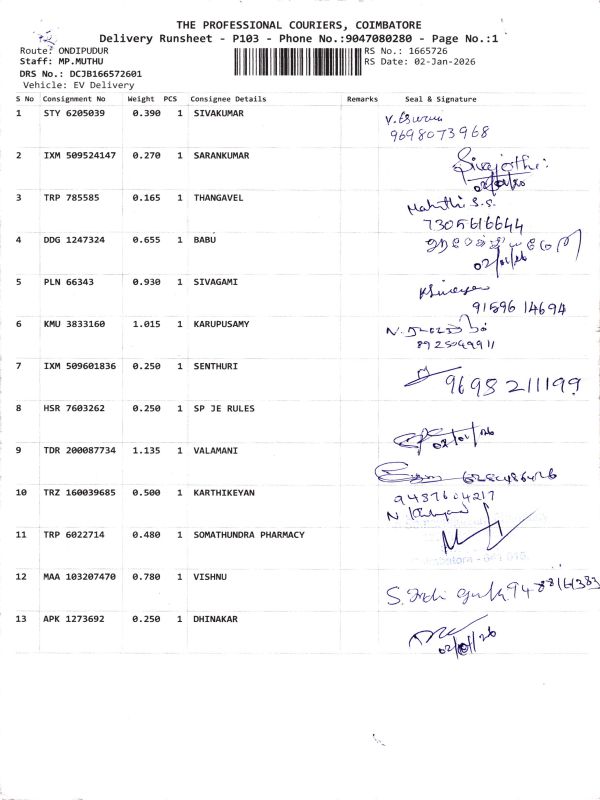 THE PROFESSIONAL COURIERS, COIMBATORE
Delivery Runsheet - P103 - Phone No.:9047080280 - Page No.:1
Route: ONDIPUDUR
RS No.: 1665726
Staff: MP.MUTHU
RS Date: 02-Jan-2026
DRS No.: DCJB166572601
Vehicle: EV Delivery
S No Consignment No Weight PCS Consignee Details Remarks Seal & Signature
1 STY 6205039 0.390 1 SIVAKUMAR
9698073968
2 IXM 509524147 0.270 1 SARANKUMAR
3 TRP 785585 0.165 1 THANGAVEL
7305616644
4 DDG 1247324 0.655 1 BABU
02/01/26
5 PLN 66343 0.930 1 SIVAGAMI
91596 14694
6 KMU 3833160 1.015 1 KARUPUSAMY
8925049911
7 IXM 509601836 0.250 1 SENTHURI
96958 211199
8 HSR 7603262 0.250 1 SP JE RULES
02/01/26
9 TDR 200087734 1.135 1 VALAMANI
10 TRZ 160039685 0.500 1 KARTHIKEYAN
9437604217
11 TRP 6022714 0.480 1 SOMATHUNDRA PHARMACY
12 MAA 103207470 0.780 1 VISHNU
13 APK 1273692 0.250 1 DHINAKAR
02/01/26